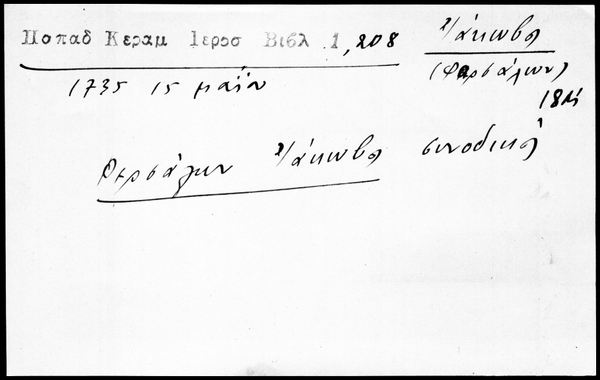 Παπαδ Κεραμ Ιεροσ Βιβλ 1,208
Ἰάκωβος
(Φαρσάλων)
1735 15 μαΐου
18ῃ
Φαρσάλων Ἰάκωβος συνοδικὸς